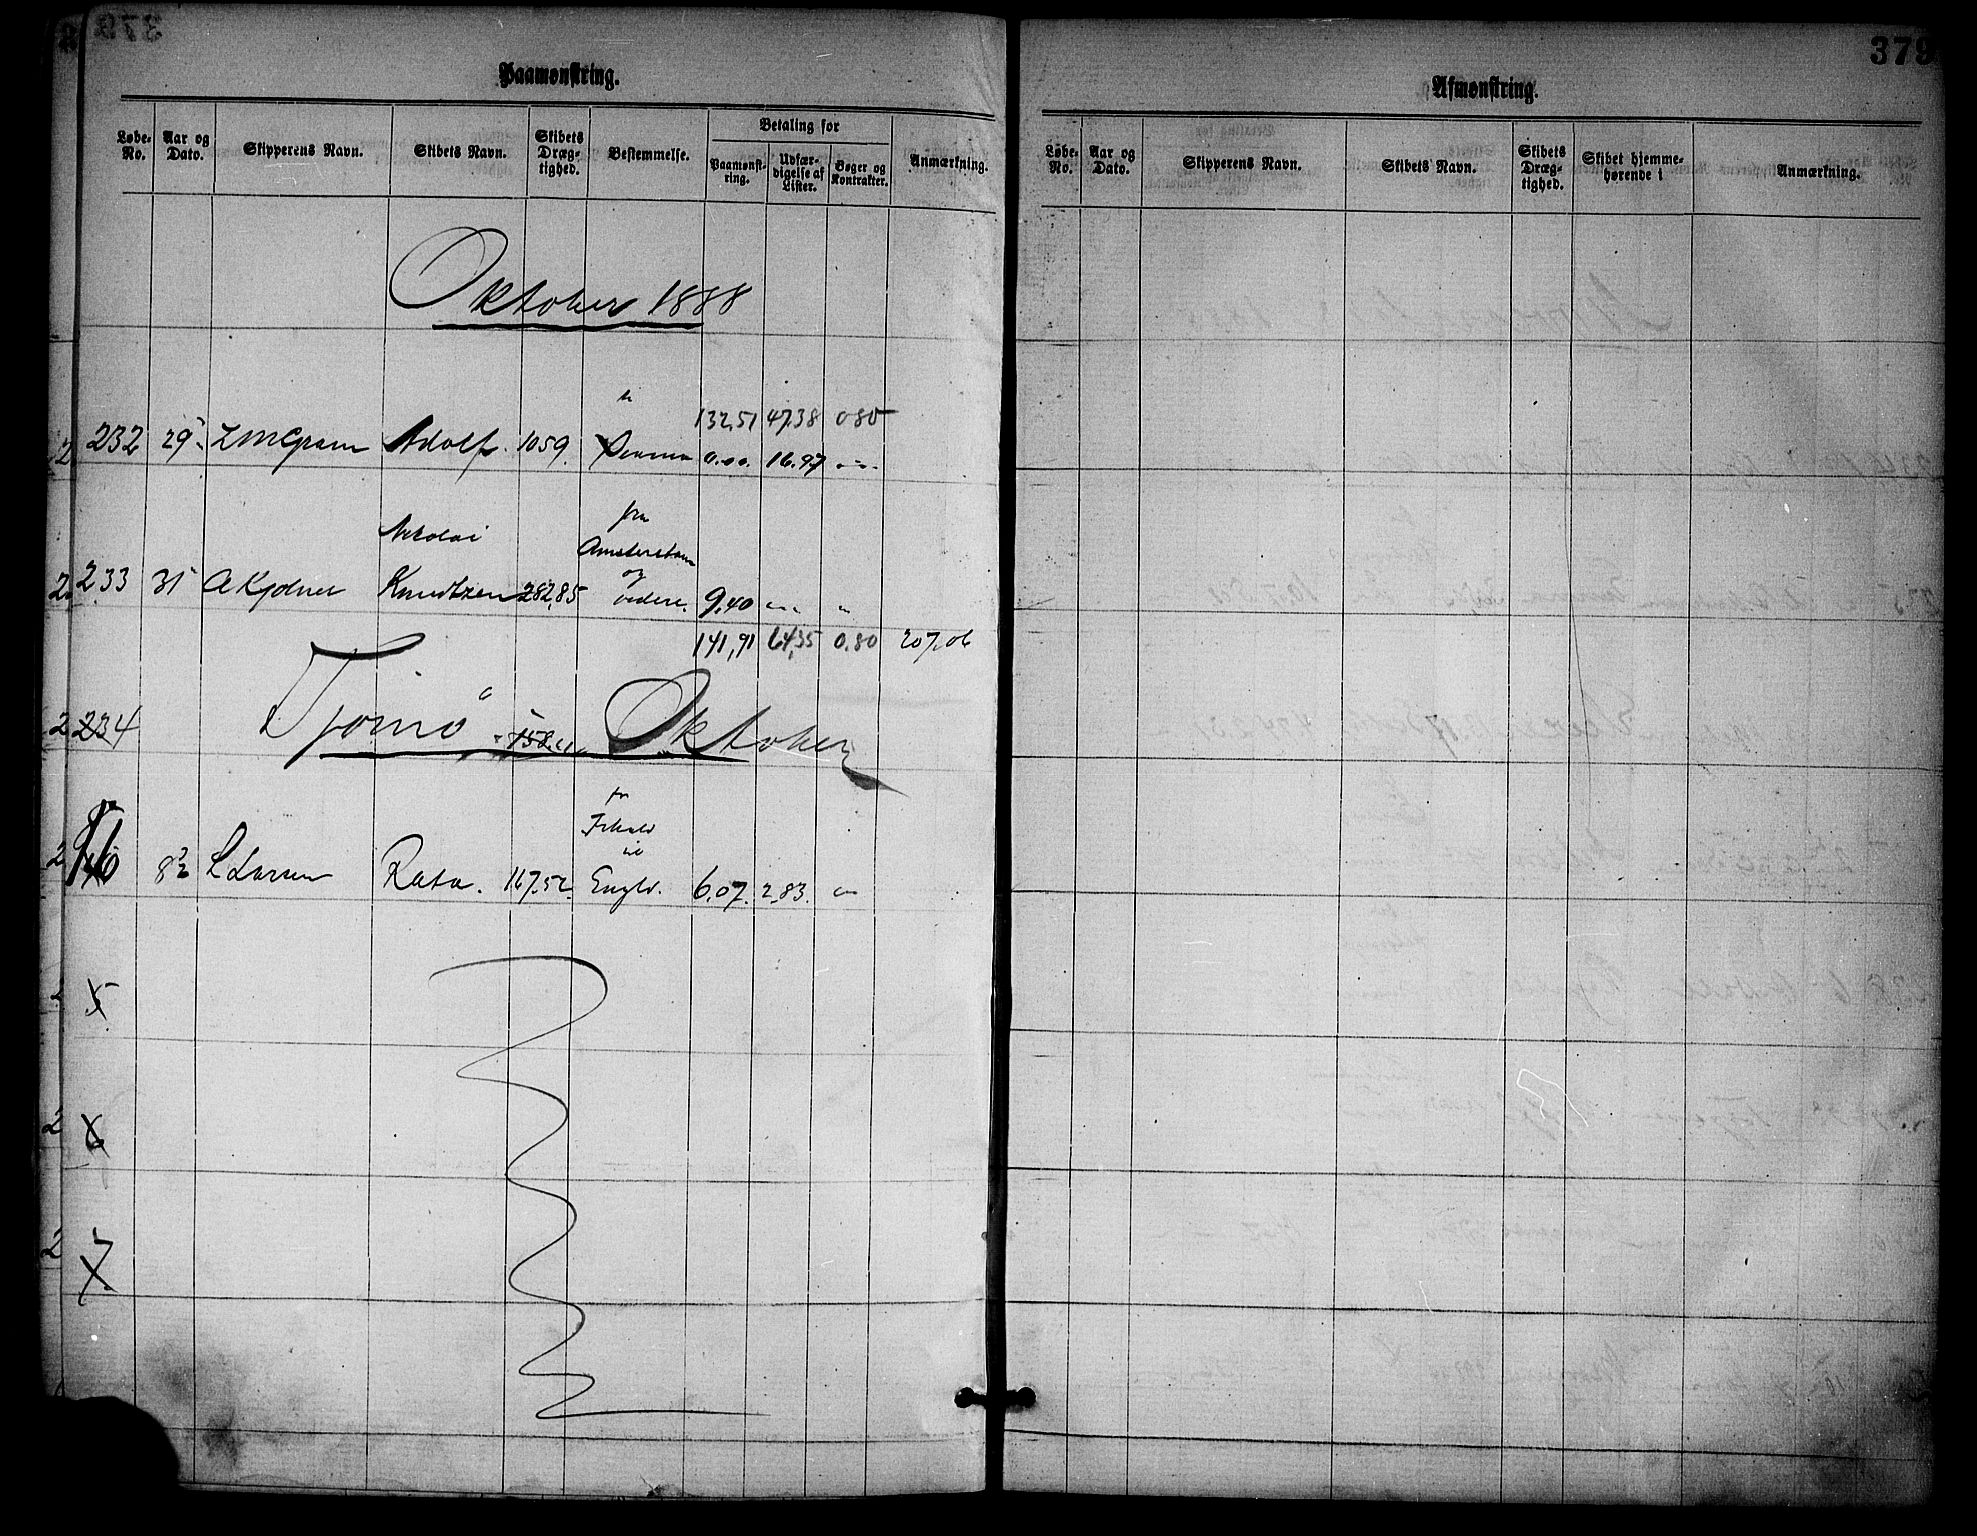 379
Paamønstring.
Løbe-No. Aar og Dato. Skipperens Navn. Skibets Navn. Skibets Dræg-tighed. Bestemmelse. Betaling for Paamønst-ring. Udfær-digelse af Lister. Bøger og Kontrakter. Anmærkning.
Oktober 1888
132,51 47,38 0 80
232 29 Adolf. 1059. 0.00. 16.97
Nikolai fra
Amsterdam
og
233 31 Knudtzen 282,85 videre. 9,40
141,91 64,35 0.80 207,06
234 Tjømø Oktober
16 L Larsen Rota. 167.52 Engld. 6.07. 2.83.
5
6
7
Afmønstring.
Løbe-No. Aar og Dato. Skipperens Navn. Skibets Navn. Skibets Dræg-tighed. Skibet hjemme-hørende i Anmærkning.